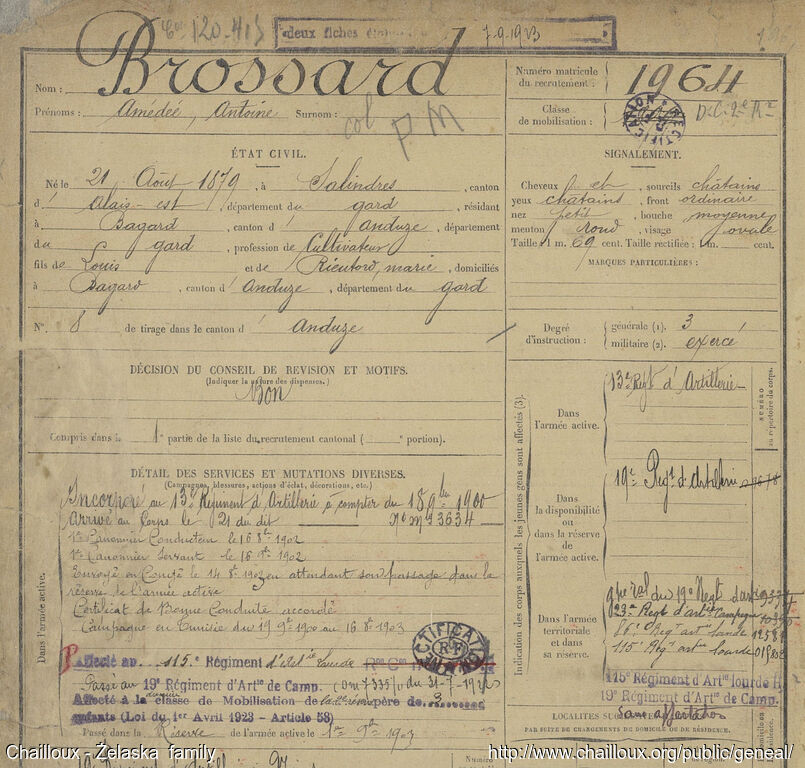 120.413
deux fiches
7-9-1923
Nom : Brossard
Prénoms : Amédée, Antoine Surnom :
col PM
Numéro matricule du recrutement : 1964
Classe de mobilisation :
RECTIFICATION
ÉTAT CIVIL.
Né le 21 Août 1879, à Salindres, canton
d' Alais-est, département du gard, résidant
à Bagard, canton d' anduze, département
du gard, profession de Cultivateur
fils de Louis et de Rieutord, marie, domiciliés
à Bagard, canton d' Anduze, département du gard
N° 8 de tirage dans le canton d' anduze
SIGNALEMENT.
Cheveux et sourcils châtains
yeux châtains, front ordinaire
nez petit, bouche moyenne
menton rond, visage ovale
Taille : 1 m. 69 cent. Taille rectifiée : 1 m. cent.
MARQUES PARTICULIÈRES :
Degré d'instruction : générale (1). 3
militaire (2). exercé
DÉCISION DU CONSEIL DE REVISION ET MOTIFS.
(Indiquer la nature des dispenses.)
Bon
Compris dans la 1e partie de la liste du recrutement cantonal ( portion).
DÉTAIL DES SERVICES ET MUTATIONS DIVERSES.
(Campagnes, blessures, actions d'éclat, décorations, etc.)
Incorporé au 13e Régiment d'Artillerie à compter du 18 9bre 1900
Arrivé au Corps le 21 du dit No Mle 3634
1er Canonnier Conducteur le 16 8bre 1902
1er Canonnier Servant le 16 9bre 1902
Envoyé en Congé le 14 8bre 1903 en attendant son passage dans la
réserve de l'armée active
Certificat de Bonne Conduite accordé
Campagne en Tunisie du 19 9bre 1900 au 16 8bre 1903
Affecté au 115e Régiment d'Art ie Lourde
RECTIFICATION RF
Passé au 19e Régiment d'Artie de Camp.
Affecté à la classe de Mobilisation de père de 3
enfants (Loi du 1er Avril 1923 - Article 58)
Passé dans la Réserve de l'armée active le 1er 9bre 1903
Dans l'armée active.
Indication des corps auxquels les jeunes gens sont affectés (3).
Dans l'armée active.
13e Regt d'Artillerie
NUMÉRO au répertoire du corps.
Dans la disponibilité ou dans la réserve de l'armée active.
19e Regt d'Artillerie
Dans l'armée territoriale et dans sa réserve.
du 19e Regt d'art
Regt d'artie Campagne
86e Regt artie lourde
115e Regt artie lourde
115e Régiment d'Artie lourde
19e Régiment d'Artie de Camp.
Sans affectation
LOCALITÉS
PAR SUITE DE CHANGEMENTS DE DOMICILE OU DE RÉSIDENCE.
Numéro
de région.
Chailloux - Żelaska family
http://www.chailloux.org/public/geneal/